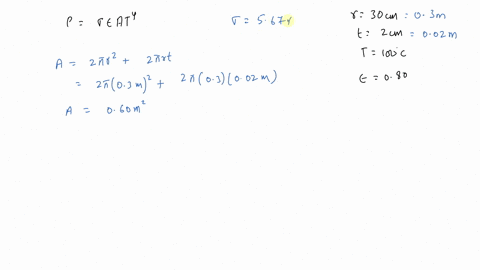 P = σ∈AT⁴
σ = 5.67x
r = 30cm = 0.3m
t = 2cm = 0.02m
T = 100°C
∈ = 0.80
A = 2πr² + 2πrt
= 2π(0.3m)² + 2π(0.3)(0.02m)
A = 0.60m²